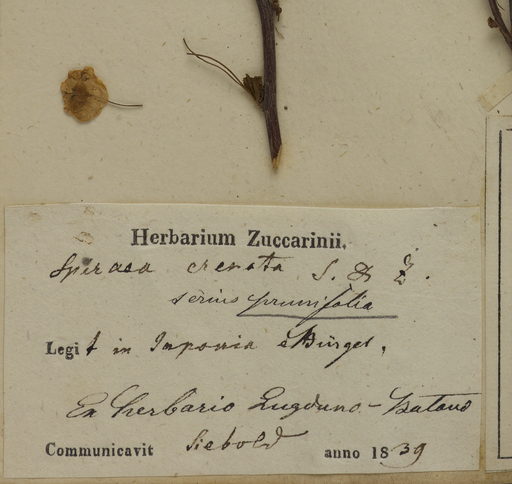 Herbarium Zuccarinii.
Spiraea crenata S. & Z.
serius prunifolia
Legit in Japonia Bürger,
Ex herbario Lugduno-Batavo
Communicavit Siebold anno 1839